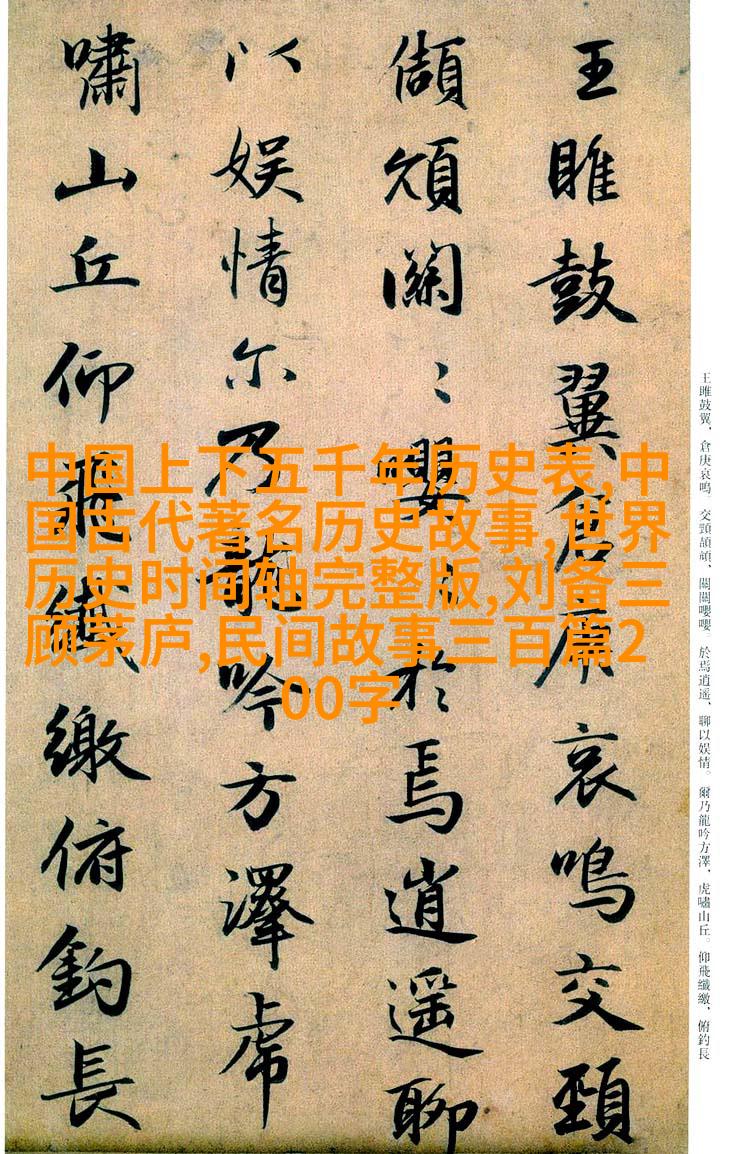 王雎鼓翼倉庚哀鳴交頸
頡頏關〻嚶〻於焉逍遥聊
以娱情尔乃龍吟方澤虎
嘯山丘仰飛纖繳俯釣長
王雎鼓翼、倉庚哀鳴。交頸頡頏、關關嚶嚶。於焉逍遥、聊以娱情。爾乃龍吟方澤、虎嘯山丘。仰飛纖繳、俯釣長
中国上下五千年历史表,中
国古代著名历史故事,世界
历史时间轴完整版,刘备三
顾茅庐,民间故事三百篇2
00字